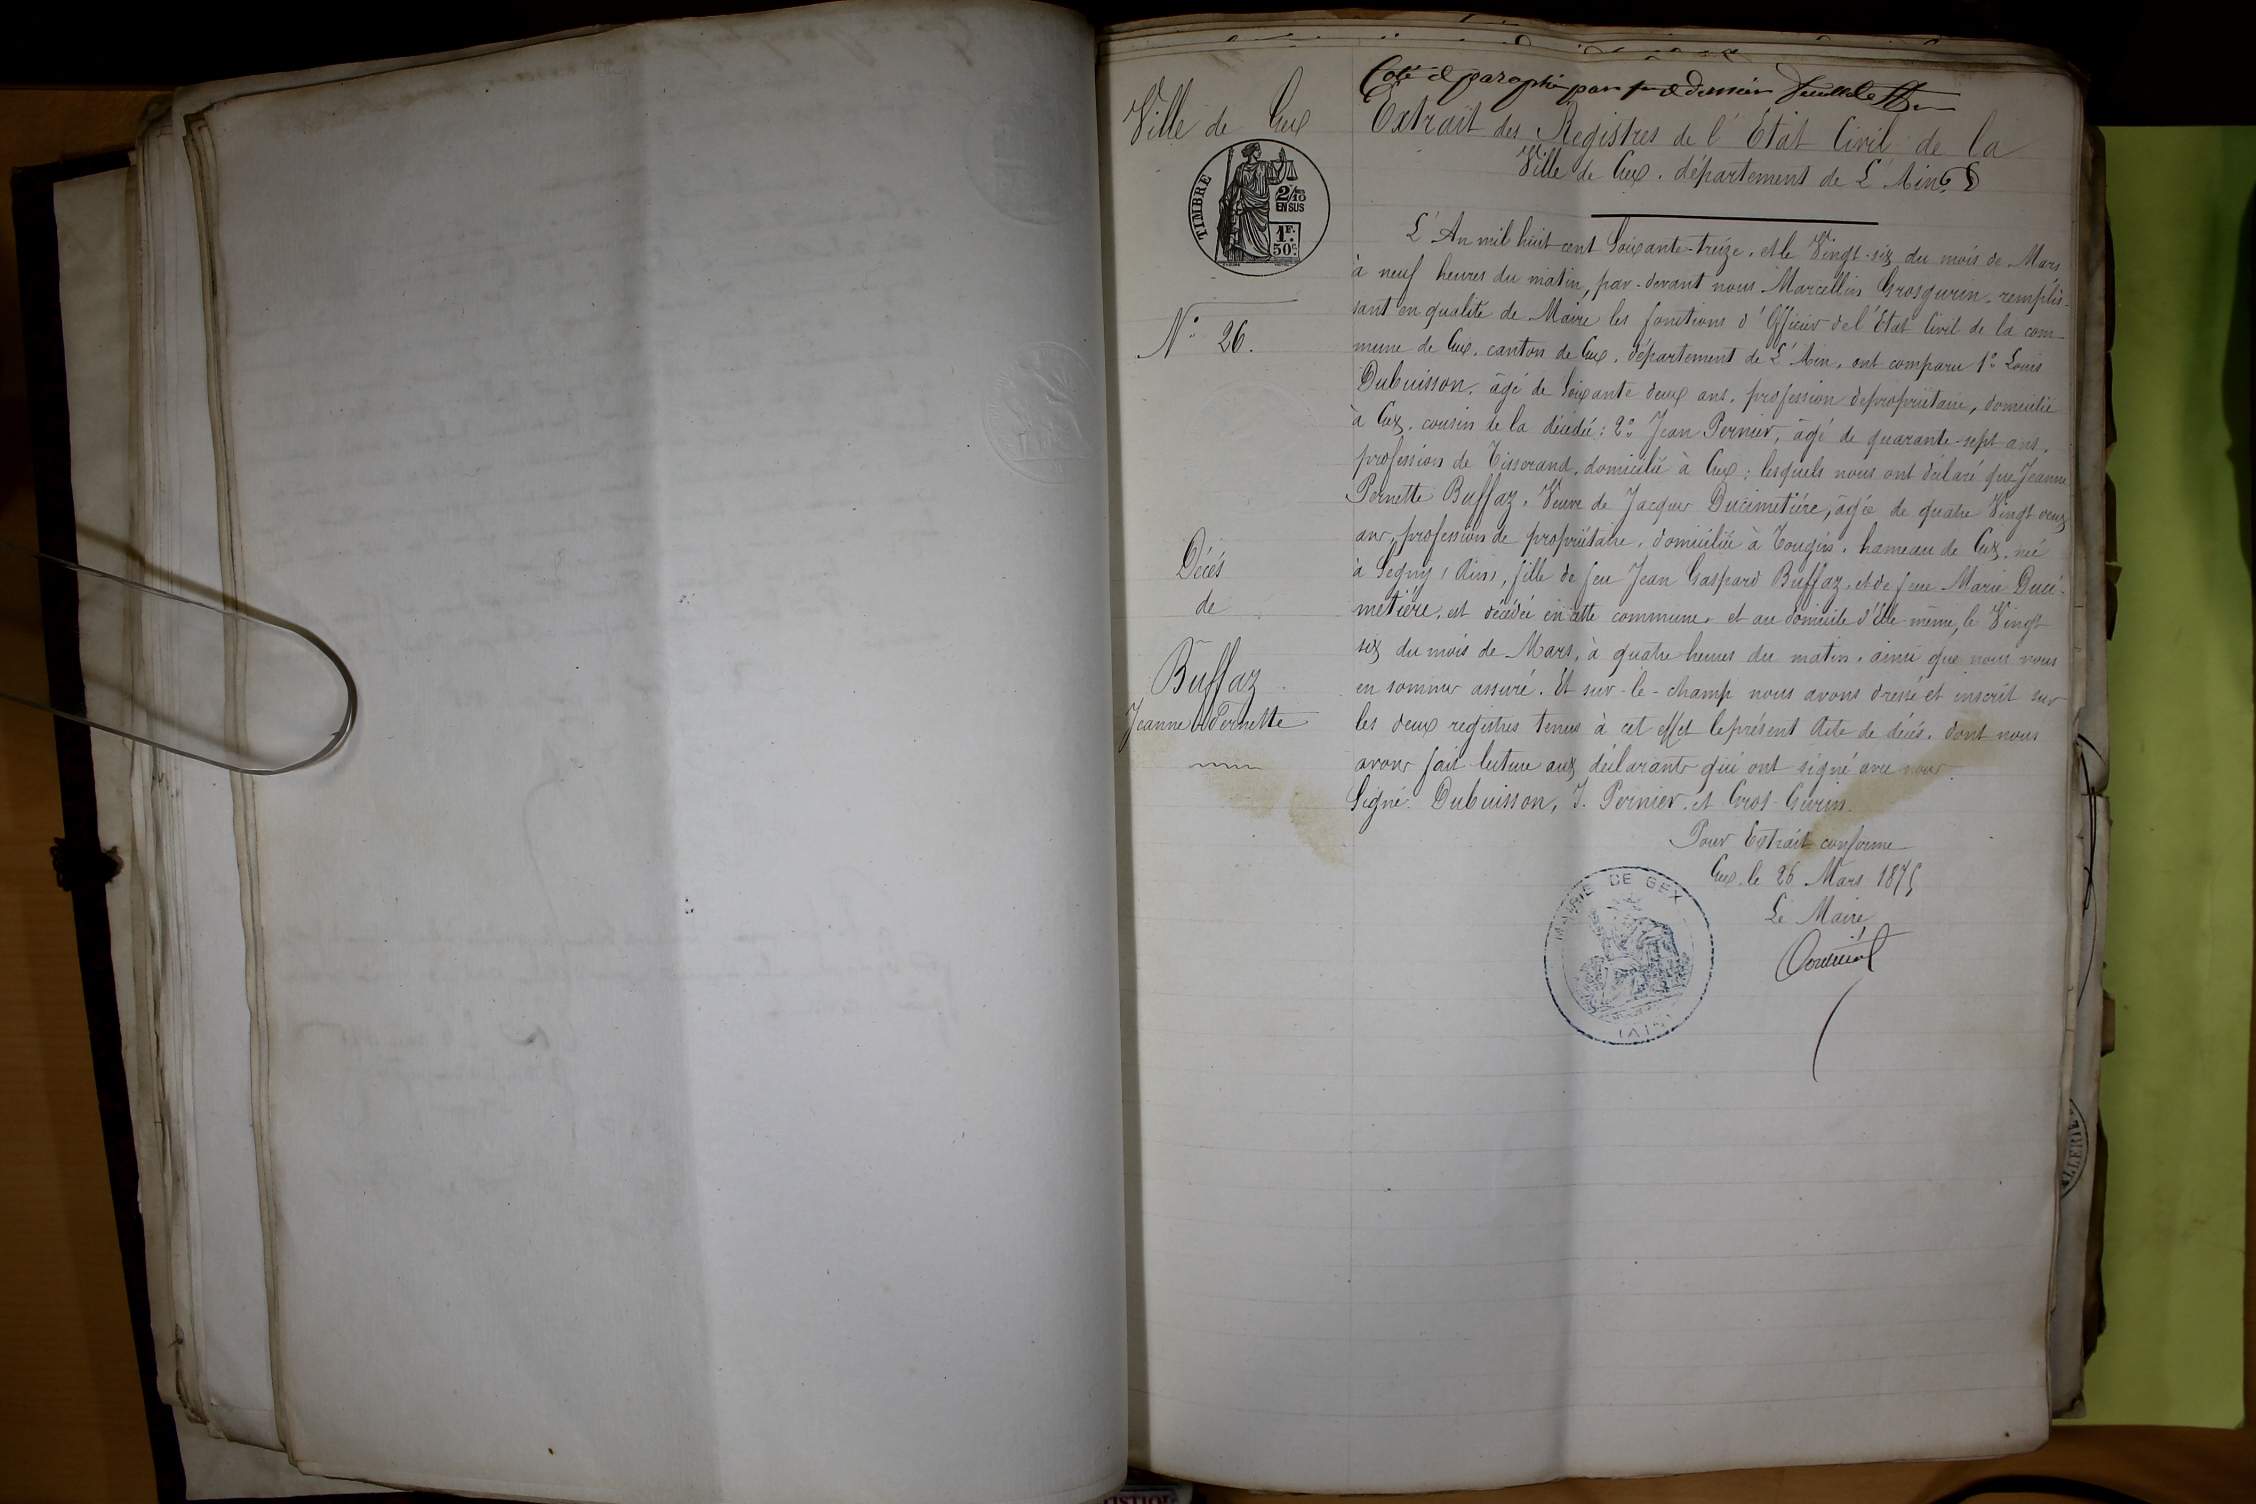 Coté & paraphé par
Ville de Gex
Extrait des Registres de l'Etat Civil de la
Ville de Gex. département de L'Ain
TIMBRE
2/10
EN SUS
1F.
50c
L'An mil huit cent Soixante-treize. et le Vingt-six du mois de Mars
à neuf heures du matin, par-devant nous Marcellin Grosgurin. remplis-
sant en qualité de Maire les fonctions d'Officier de l'Etat Civil de la com-
N° 26.
mune de Gex. canton de Gex. département de L'Ain. ont comparu 1° Louis
Dubuisson. âgé de Soixante deux ans. profession de propriétaire, domicilié
à Gex. cousin de la décédée: 2° Jean Pernier, âgé de quarante-sept ans.
profession de Tisserand. domicilié à Gex: lesquels nous ont déclaré que Jeanne
Pernette Buffaz. Veuve de Jacques Ducimetière, âgée de quatre Vingt deux
ans, profession de propriétaire. domiciliée à Tougin. hameau de Gex. née
Décés
à Segny (Ain), fille de feu Jean Gaspard Buffaz. et de feue Marie Duci-
de
métière. est décédée en cette commune. et au domicile d'Elle-même, le Vingt
six du mois de Mars, à quatre heures du matin. ainsi que nous nous
Buffaz
en sommes assuré. Et sur-le-champ nous avons dressé et inscrit sur
Jeanne Pernette
les deux registres tenus à cet effet le présent Acte de décés. dont nous
avons fait lecture aux déclarants qui ont signé avec nous.
Signé: Dubuisson, J. Pernier. et Gros-Gurin.
Pour Extrait conforme
Gex. le 26 Mars 1875
Le Maire
MAIRIE DE GEX
(AIN)
LLERIE